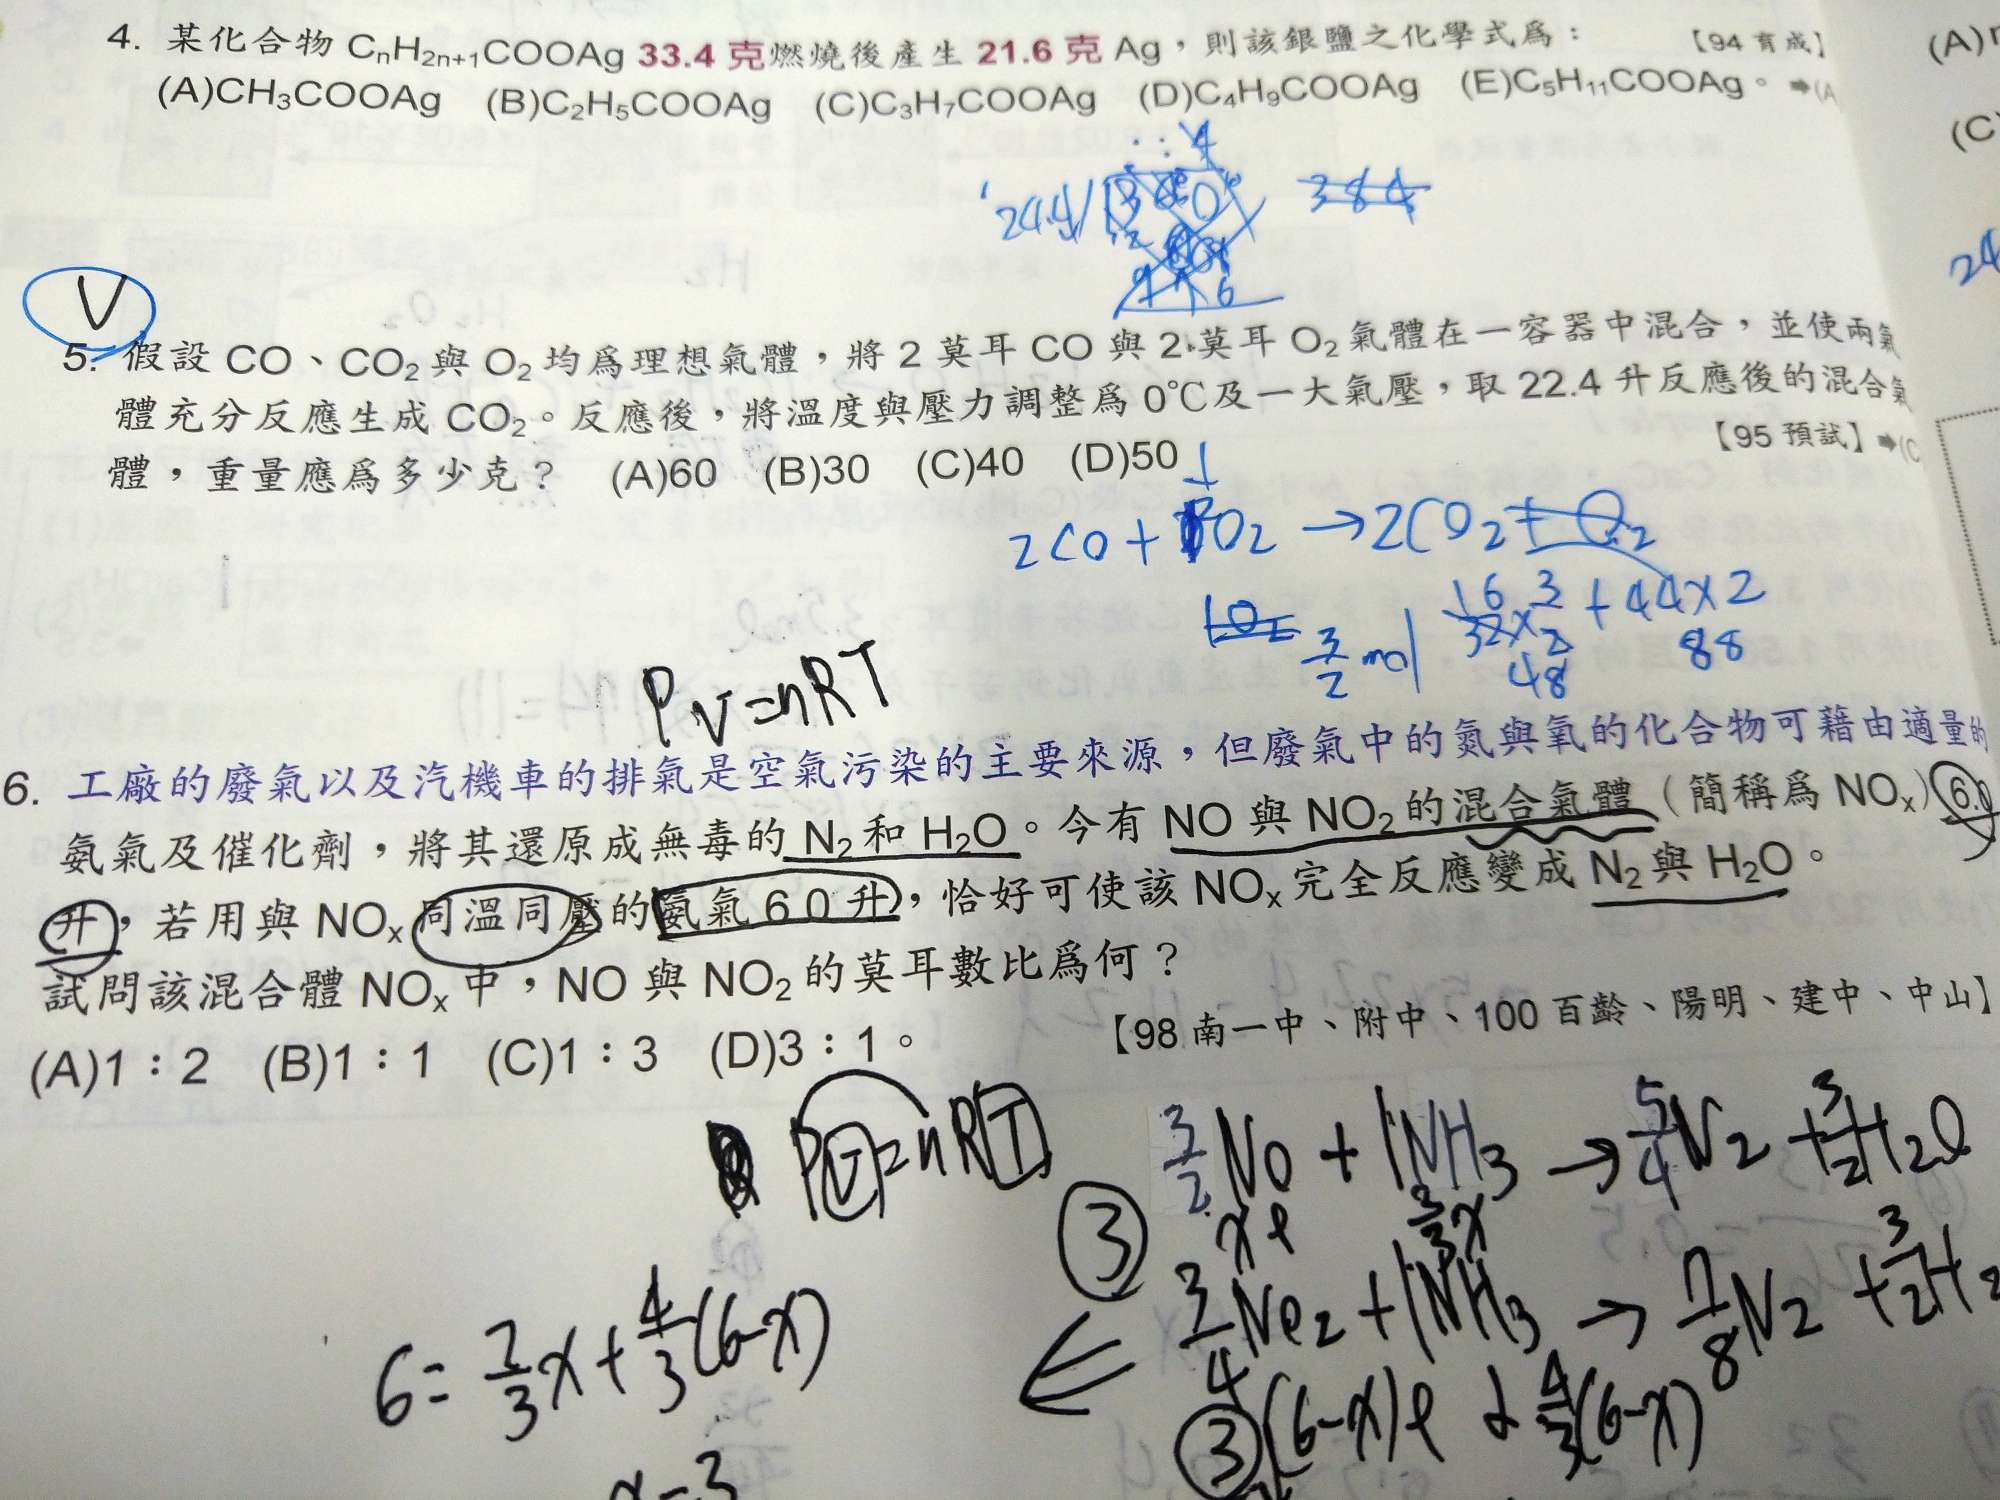 4. 某化合物 CnH2n+1COOAg 33.4 克燃燒後產生 21.6 克 Ag，則該銀鹽之化學式爲： 【94 育成】
(A)CH3COOAg (B)C2H5COOAg (C)C3H7COOAg (D)C4H9COOAg (E)C5H11COOAg。 ➡(A
4
24.4
384
V
5. 假設 CO、CO2 與 O2 均爲理想氣體，將 2 莫耳 CO 與 2 莫耳 O2 氣體在一容器中混合，並使兩氣
體充分反應生成 CO2。反應後，將溫度與壓力調整爲 0℃及一大氣壓，取 22.4 升反應後的混合氣
體，重量應爲多少克？ (A)60 (B)30 (C)40 (D)50 【95 預試】➡(C
2CO + O2 → 2CO2 + O2
3/2 mol
16 3
32×2 + 44×2
48 88
PV=nRT
6. 工廠的廢氣以及汽機車的排氣是空氣污染的主要來源，但廢氣中的氮與氧的化合物可藉由適量的
氨氣及催化劑，將其還原成無毒的 N2 和 H2O。今有 NO 與 NO2 的混合氣體（簡稱爲 NOx）6.0
升，若用與 NOx 同溫同壓的氨氣 6.0 升，恰好可使該 NOx 完全反應變成 N2 與 H2O。
試問該混合體 NOx 中，NO 與 NO2 的莫耳數比爲何？
(A)1：2 (B)1：1 (C)1：3 (D)3：1。 【98 南一中、附中、100 百齡、陽明、建中、中山】
PV=nRT
3/2 NO + 1NH3 → 5/4 N2 + 3/2 H2O
③ xl 2/3x
3/4 NO2 + 1NH3 → 7/8 N2 + 3/2 H2
6= 2/3x + 4/3(6-x)
③ (6-x)l 4/3(6-x)
x=3